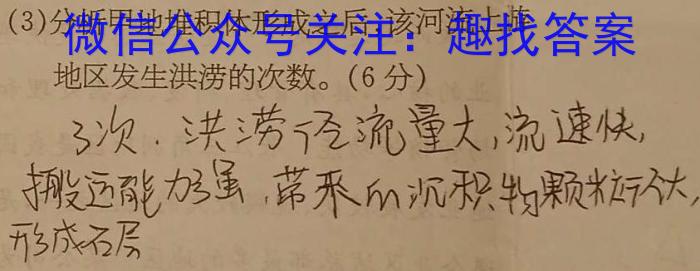 (3)分析因地堆积体形成之后,该河流上游
微信公众号关注：趣找答案
地区发生洪涝的次数。(6分)
3次.洪涝径流量大,流速快,
搬运能力强,带来的沉积物颗粒大,
形成石层